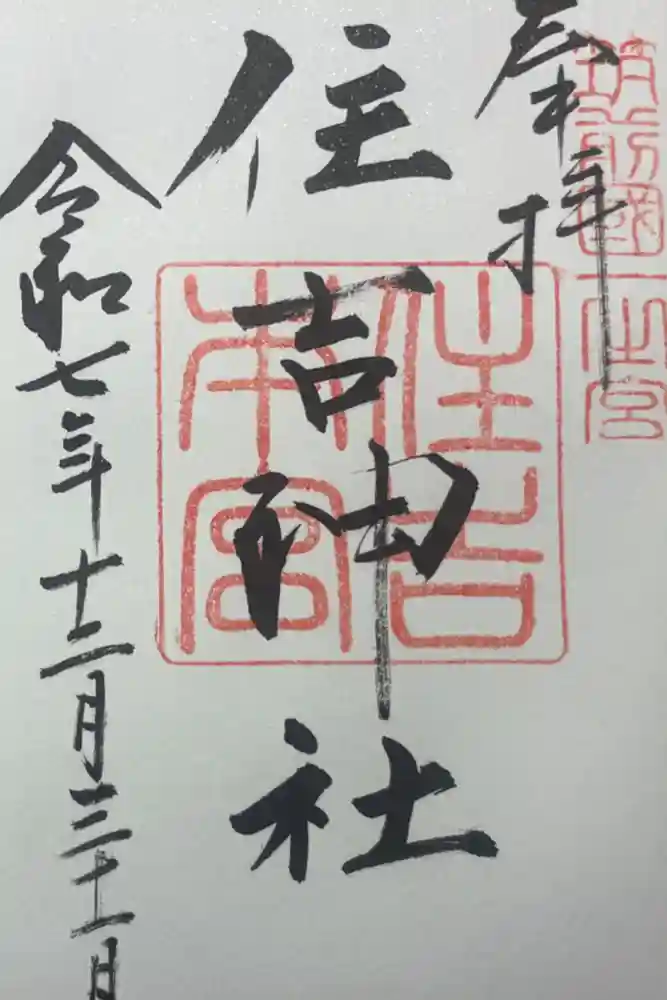 筑前國一之宮
奉拝
住吉神社
住吉
本宮
令和七年十二月三十一日